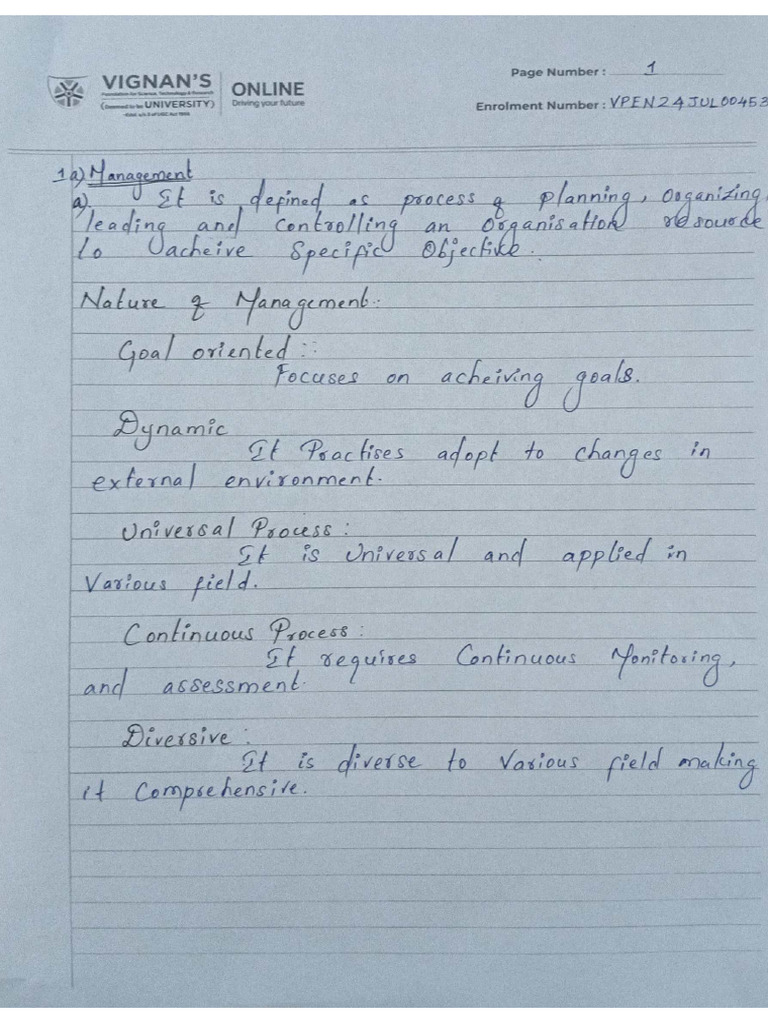 Page Number : 1
VIGNAN'S
Foundation for Science, Technology & Research
(Deemed to be UNIVERSITY)
-Estd. u/s 3 of UGC Act 1956
ONLINE
Driving your future
Enrolment Number : VPEN24JUL00453
1a) Management
a). It is defined as process of planning, Organizing,
leading and controlling an Organisation resource
to acheive Specific Objective.
Nature of Management:
Goal oriented::
Focuses on acheiving goals.
Dynamic
It Practises adopt to changes in
external environment.
Universal Process:
It is Universal and applied in
Various field.
Continuous Process:
It requires Continuous Monitoring,
and assessment.
Diversive:
It is diverse to Various field making
it Comprehensive.